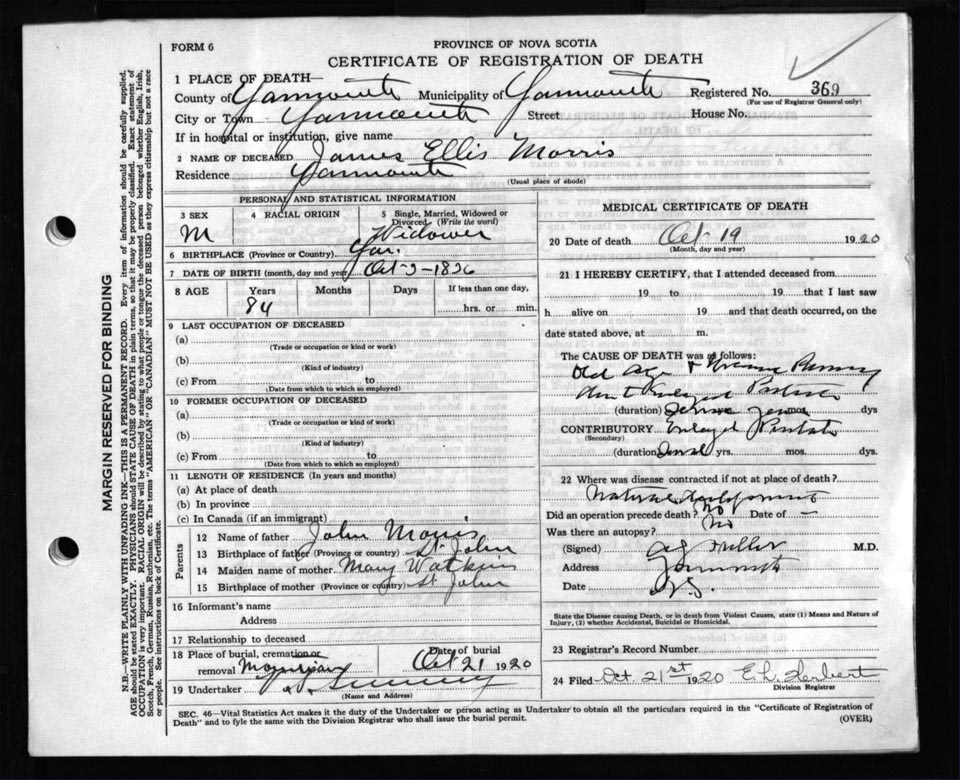 FORM 6
PROVINCE OF NOVA SCOTIA
CERTIFICATE OF REGISTRATION OF DEATH
1 PLACE OF DEATH—
County of Yarmouth Municipality of Yarmouth Registered No. 369
(For use of Registrar General only)
City or Town Yarmouth Street House No.
If in hospital or institution, give name
2 NAME OF DECEASED James Ellis Morris
Residence Yarmouth
(Usual place of abode)
PERSONAL AND STATISTICAL INFORMATION
3 SEX 4 RACIAL ORIGIN 5 Single, Married, Widowed or Divorced (Write the word)
M Widower
6 BIRTHPLACE (Province or Country) Yar.
7 DATE OF BIRTH (month, day and year) Oct-2-1836
8 AGE Years Months Days If less than one day,
84 hrs. or min.
9 LAST OCCUPATION OF DECEASED
(a)
(Trade or occupation or kind or work)
(b)
(Kind of industry)
(c) From to
(Date from which to which so employed)
10 FORMER OCCUPATION OF DECEASED
(a)
(Trade or occupation or kind of work)
(b)
(Kind of industry)
(c) From to
(Date from which to which so employed)
11 LENGTH OF RESIDENCE (In years and months)
(a) At place of death
(b) In province
(c) In Canada (if an immigrant)
Parents
12 Name of father John Morris
13 Birthplace of father (Province or country) St. John
14 Maiden name of mother Mary Watkins
15 Birthplace of mother (Province or country) St John
16 Informant's name
Address
17 Relationship to deceased
18 Place of burial, cremation or removal Date of burial
Oct 21 1920
19 Undertaker
(Name and Address)
MEDICAL CERTIFICATE OF DEATH
20 Date of death Oct-19 1920
(Month, day and year)
21 I HEREBY CERTIFY, that I attended deceased from
19 to 19 that I last saw
h alive on 19 and that death occurred, on
date stated above, at m.
The CAUSE OF DEATH was as follows:
Old Age &
Enlarged Prostate
(duration) mos. dys
CONTRIBUTORY Enlarged Prostate
(Secondary)
(duration) yrs. mos. dys.
22 Where was disease contracted if not at place of death?
Natural
Did an operation precede death? No Date of —
Was there an autopsy? No
(Signed) M.D.
Address Yarmouth
Date N.S.
State the Disease causing Death, or in death from Violent Causes, state (1) Means and Nature of
Injury, (2) whether Accidental, Suicidal or Homicidal.
23 Registrar's Record Number
24 Filed Oct. 21st 1920 E.L. Herbert
Division Registrar
SEC. 46—Vital Statistics Act makes it the duty of the Undertaker or person acting as Undertaker to obtain all the particulars required in the "Certificate of Registration of
Death" and to fyle the same with the Division Registrar who shall issue the burial permit.
(OVER)
MARGIN RESERVED FOR BINDING
N.B.—WRITE PLAINLY WITH UNFADING INK—THIS IS A PERMANENT RECORD. Every item of information should be carefully supplied.
AGE should be stated EXACTLY. PHYSICIANS should STATE CAUSE OF DEATH in plain terms, so that it may be properly classified. Exact statement of
OCCUPATION is very important. RACIAL ORIGIN will be described by stating to what people or tongue the deceased person belonged whether English, Irish,
Scotch, French, German, Russian, Ruthenian, etc. The terms "AMERICAN" OR "CANADIAN" MUST NOT BE USED as they express citizenship but not a race
or people. See instructions on back of Certificate.